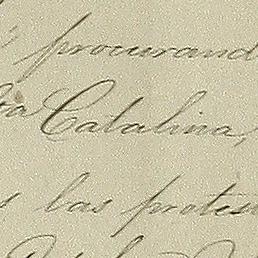 procurand
Catalina,
las protes